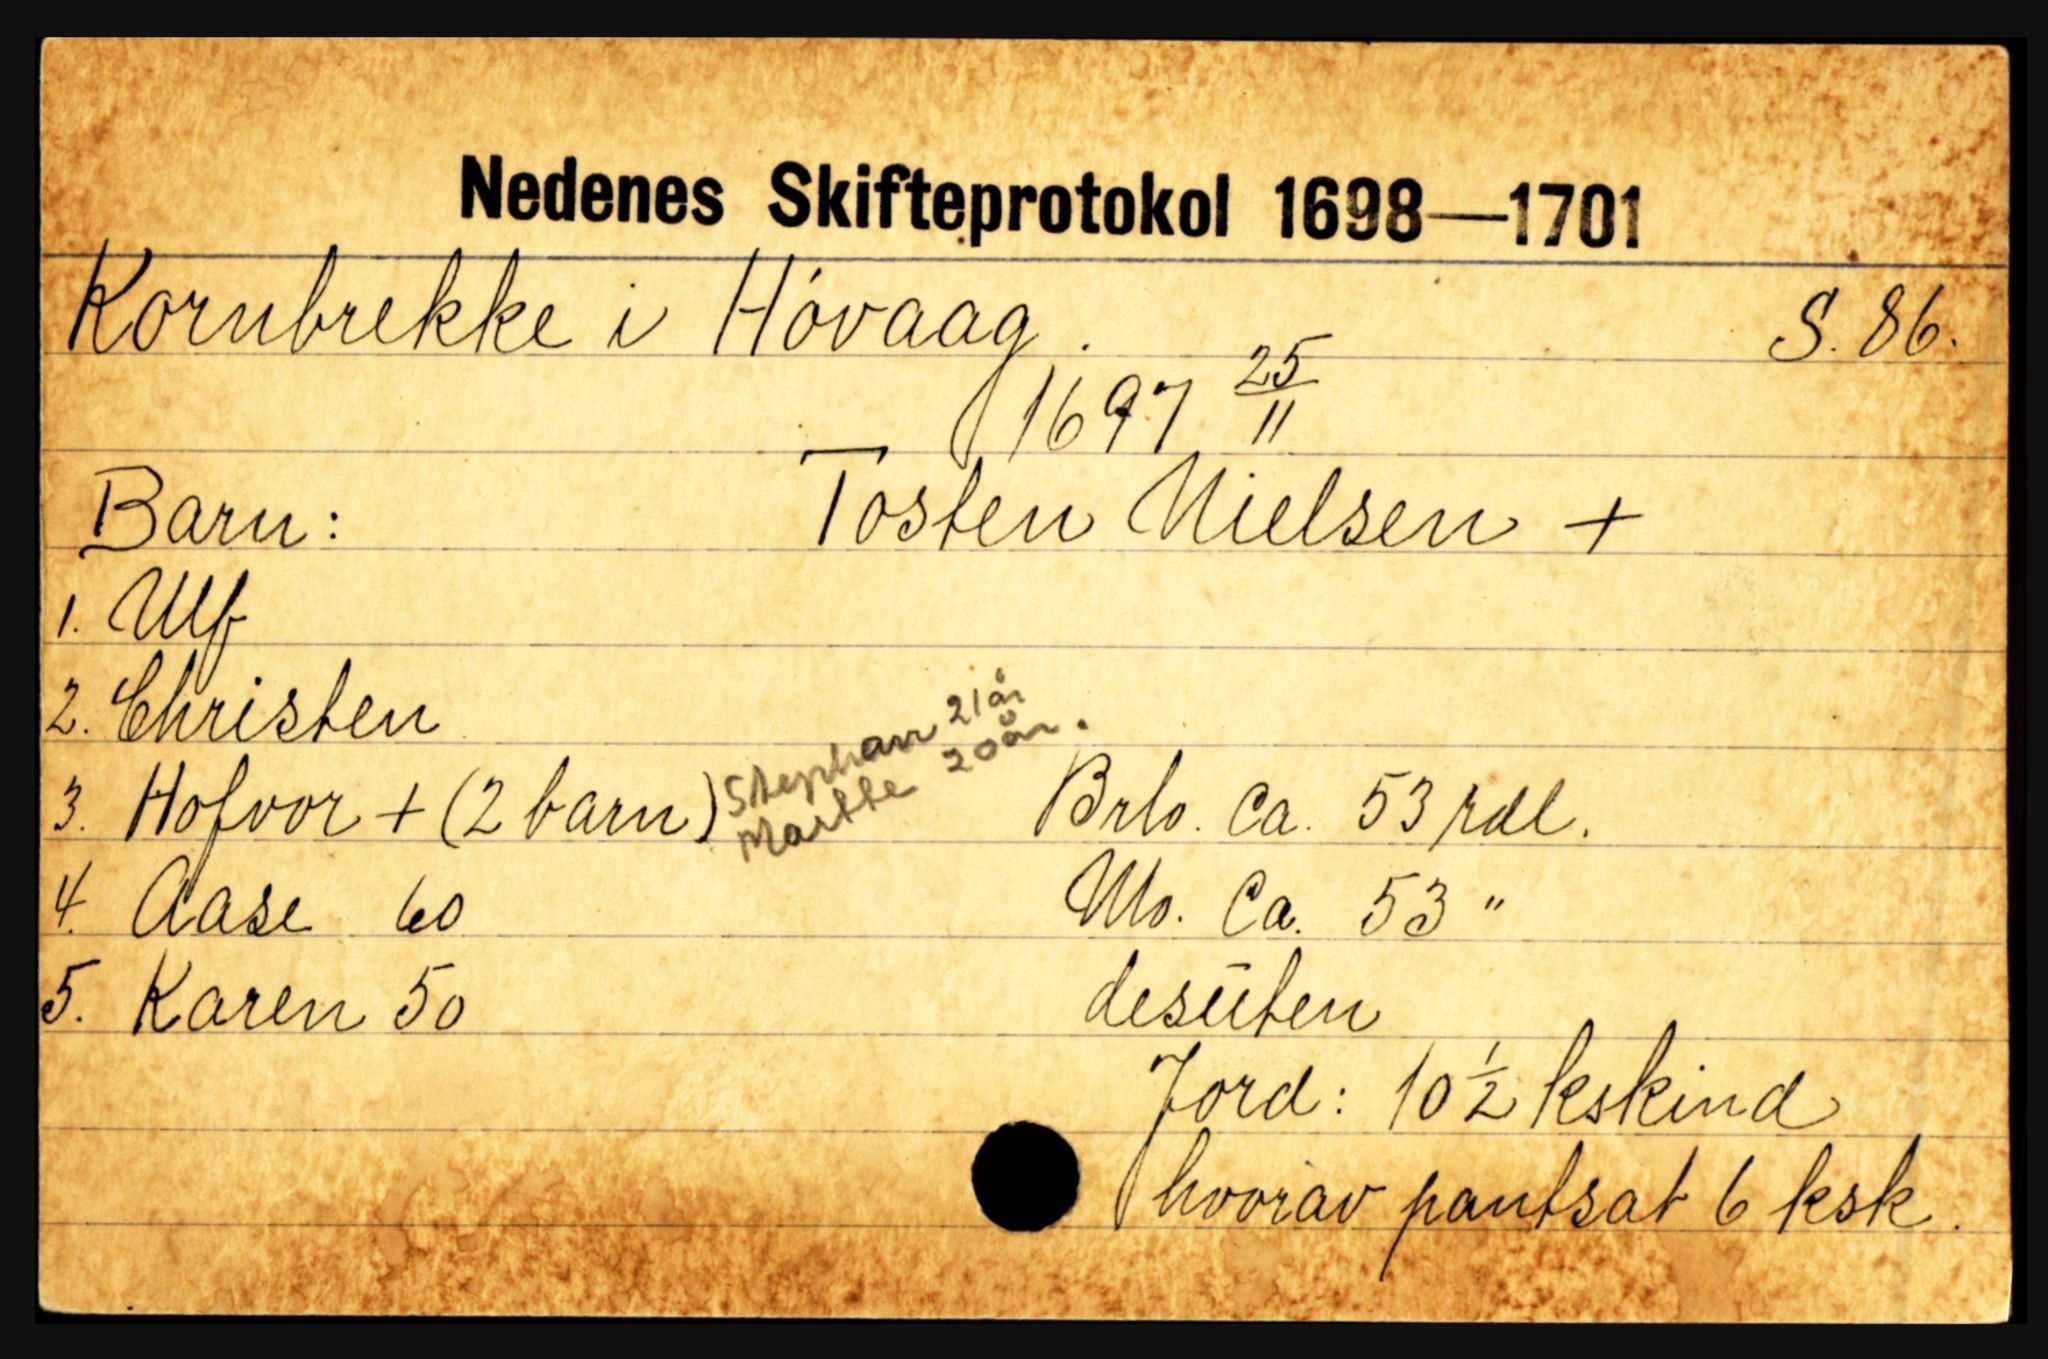 Nedenes Skifteprotokol 1698—1701
Kornbrekke i Hóvaag. S. 86.
1697 25/11
Barn: Tosten Nielsen +
1. Ulf
2. Christen
3. Hofvor + (2 barn) Stephan 21 år
Marthe 20 år.
Brb. Ca. 53 rdl.
4. Aase 60 Mo. Ca. 53 "
5. Karen 50 desūten
Jord: 10 1/2 kskind
hvorav pantsat 6 ksk.